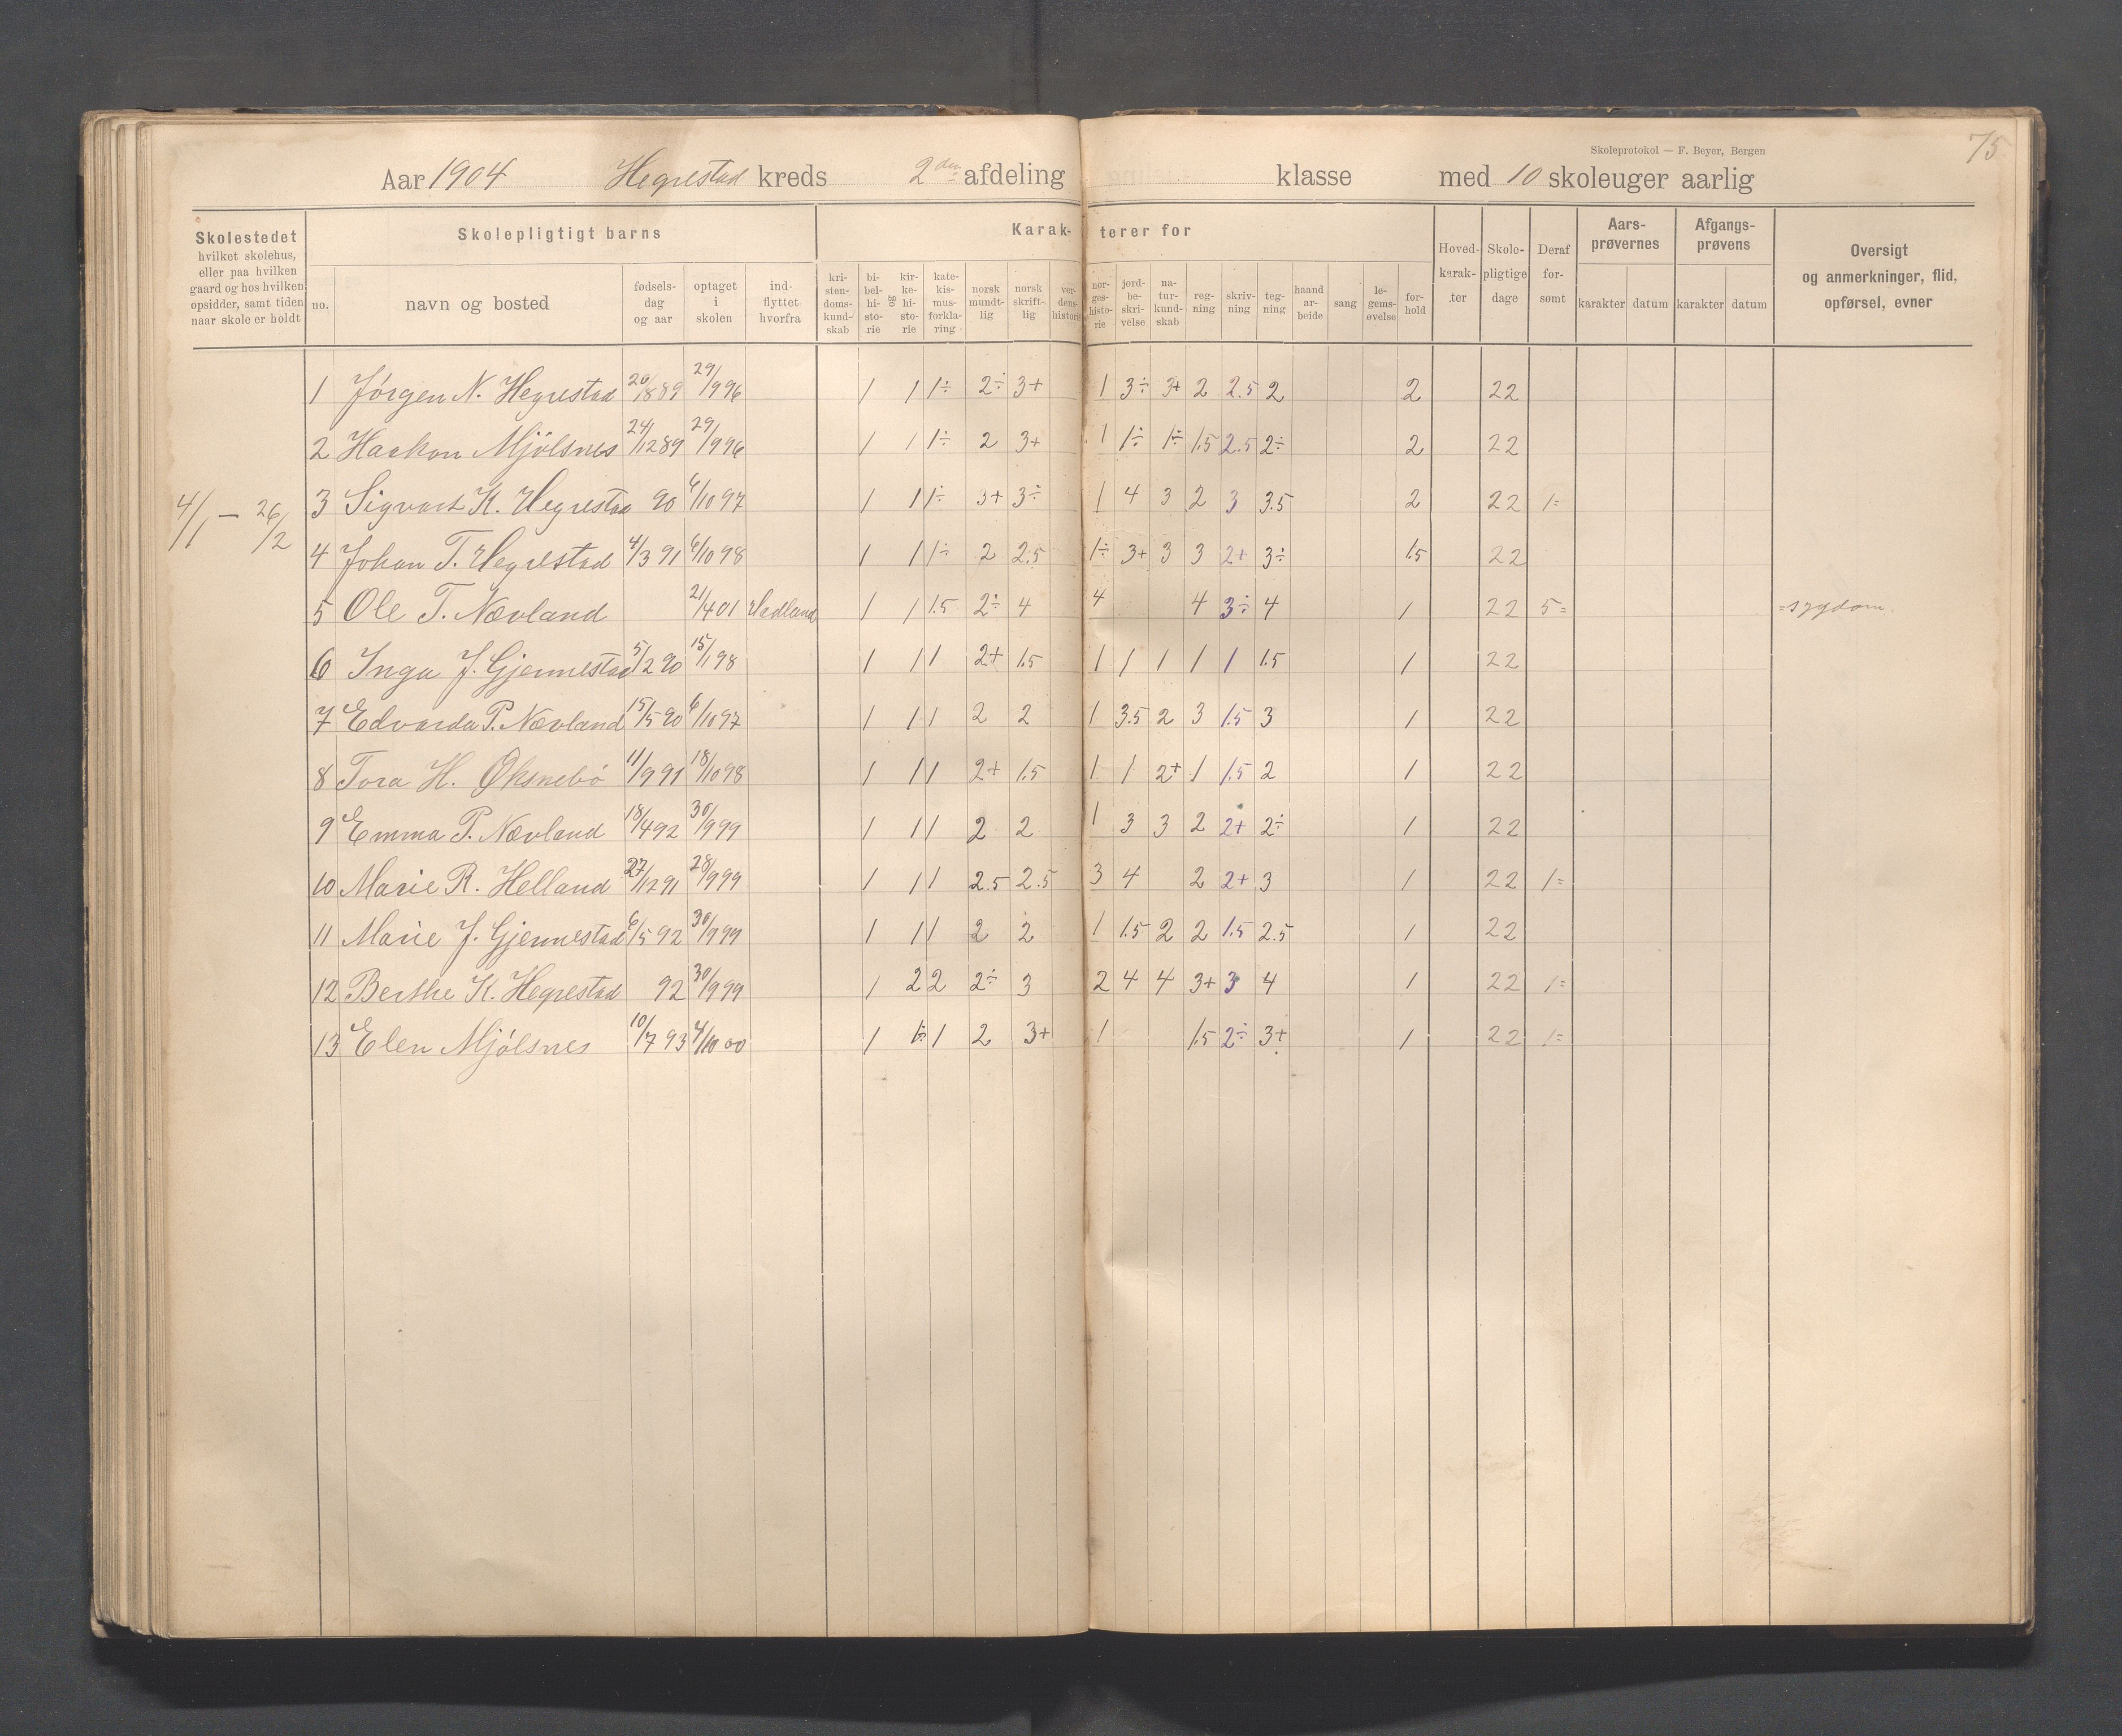 75
Skoleprotokol — F. Beyer, Bergen
Aar 1904 Hegrestad kreds 2den afdeling klasse med 10 skoleuger aarlig
Skolestedet hvilket skolehus, eller paa hvilken gaard og hos hvilken opsidder, samt tiden naar skole er holdt
Skolepligtigt barns
Karak- terer for
no. navn og bosted fødsels- dag og aar optaget i skolen ind- flyttet hvorfra
kri- sten- doms- kund- skab bi- bel- hi- sto- rie og kir- ke- hi- sto- rie kate- kis- mus- forkla- ring norsk mundt- lig norsk skrift- lig ver- dens- historie nor- ges- histo- rie jord- be- skri- velse na- tur- kund- skab reg- ning skriv- ning teg- ning haand ar- beide sang le- gems- øvelse for- hold
Hoved- karak- ter Skole- pligtige dage Deraf for- sømt
Aars- prøvernes karakter datum Afgangs- prøvens karakter datum
Oversigt og anmerkninger, flid, opførsel, evner
4/1 — 26/2
1 Jørgen N. Hegrestad 20/8 89 29/9 96 1 1 1÷ 2÷ 3+ 1 3÷ 3+ 2 2.5 2 2 22
2 Haakon Mjølsnes 24/12 89 29/9 96 1 1 1÷ 2 3+ 1 1÷ 1÷ 1.5 2.5 2÷ 2 22
3 Sigvart K. Hegrestad 90 6/10 97 1 1 1÷ 3+ 3÷ 1 4 3 2 3 3.5 2 22 1=
4 Johan T. Hegrestad 4/3 91 6/10 98 1 1 1÷ 2 2.5 1÷ 3+ 3 3 2+ 3÷ 1.5 22
5 Ole T. Nævland 21/4 01 Hadland 1 1 1.5 2÷ 4 4 4 3÷ 4 1 22 5= =sygdom.
6 Inga J. Gjennestad 5/2 90 15/1 98 1 1 1 2+ 1.5 1 1 1 1 1 1.5 1 22
7 Edvarda P. Nævland 15/5 90 6/10 97 1 1 1 2 2 1 3.5 2 3 1.5 3 1 22
8 Tora H. Øksnebø 11/9 91 18/10 98 1 1 1 2+ 1.5 1 1 2+ 1 1.5 2 1 22
9 Emma P. Nævland 18/4 92 30/9 99 1 1 1 2 2 1 3 3 2 2+ 2÷ 1 22
10 Marie R. Helland 27/12 91 28/9 99 1 1 1 2.5 2.5 3 4 2 2+ 3 1 22 1=
11 Marie J. Gjennestad 6/5 92 30/9 99 1 1 1 2 2 1 1.5 2 2 1.5 2.5 1 22
12 Berthe K. Hegrestad 92 30/9 99 1 2 2 2÷ 3 2 4 4 3+ 3 4 1 22 1=
13 Elen Mjølsnes 10/7 93 4/10 00 1 1÷ 1 2 3+ 1 1.5 2÷ 3+ 1 22 1=